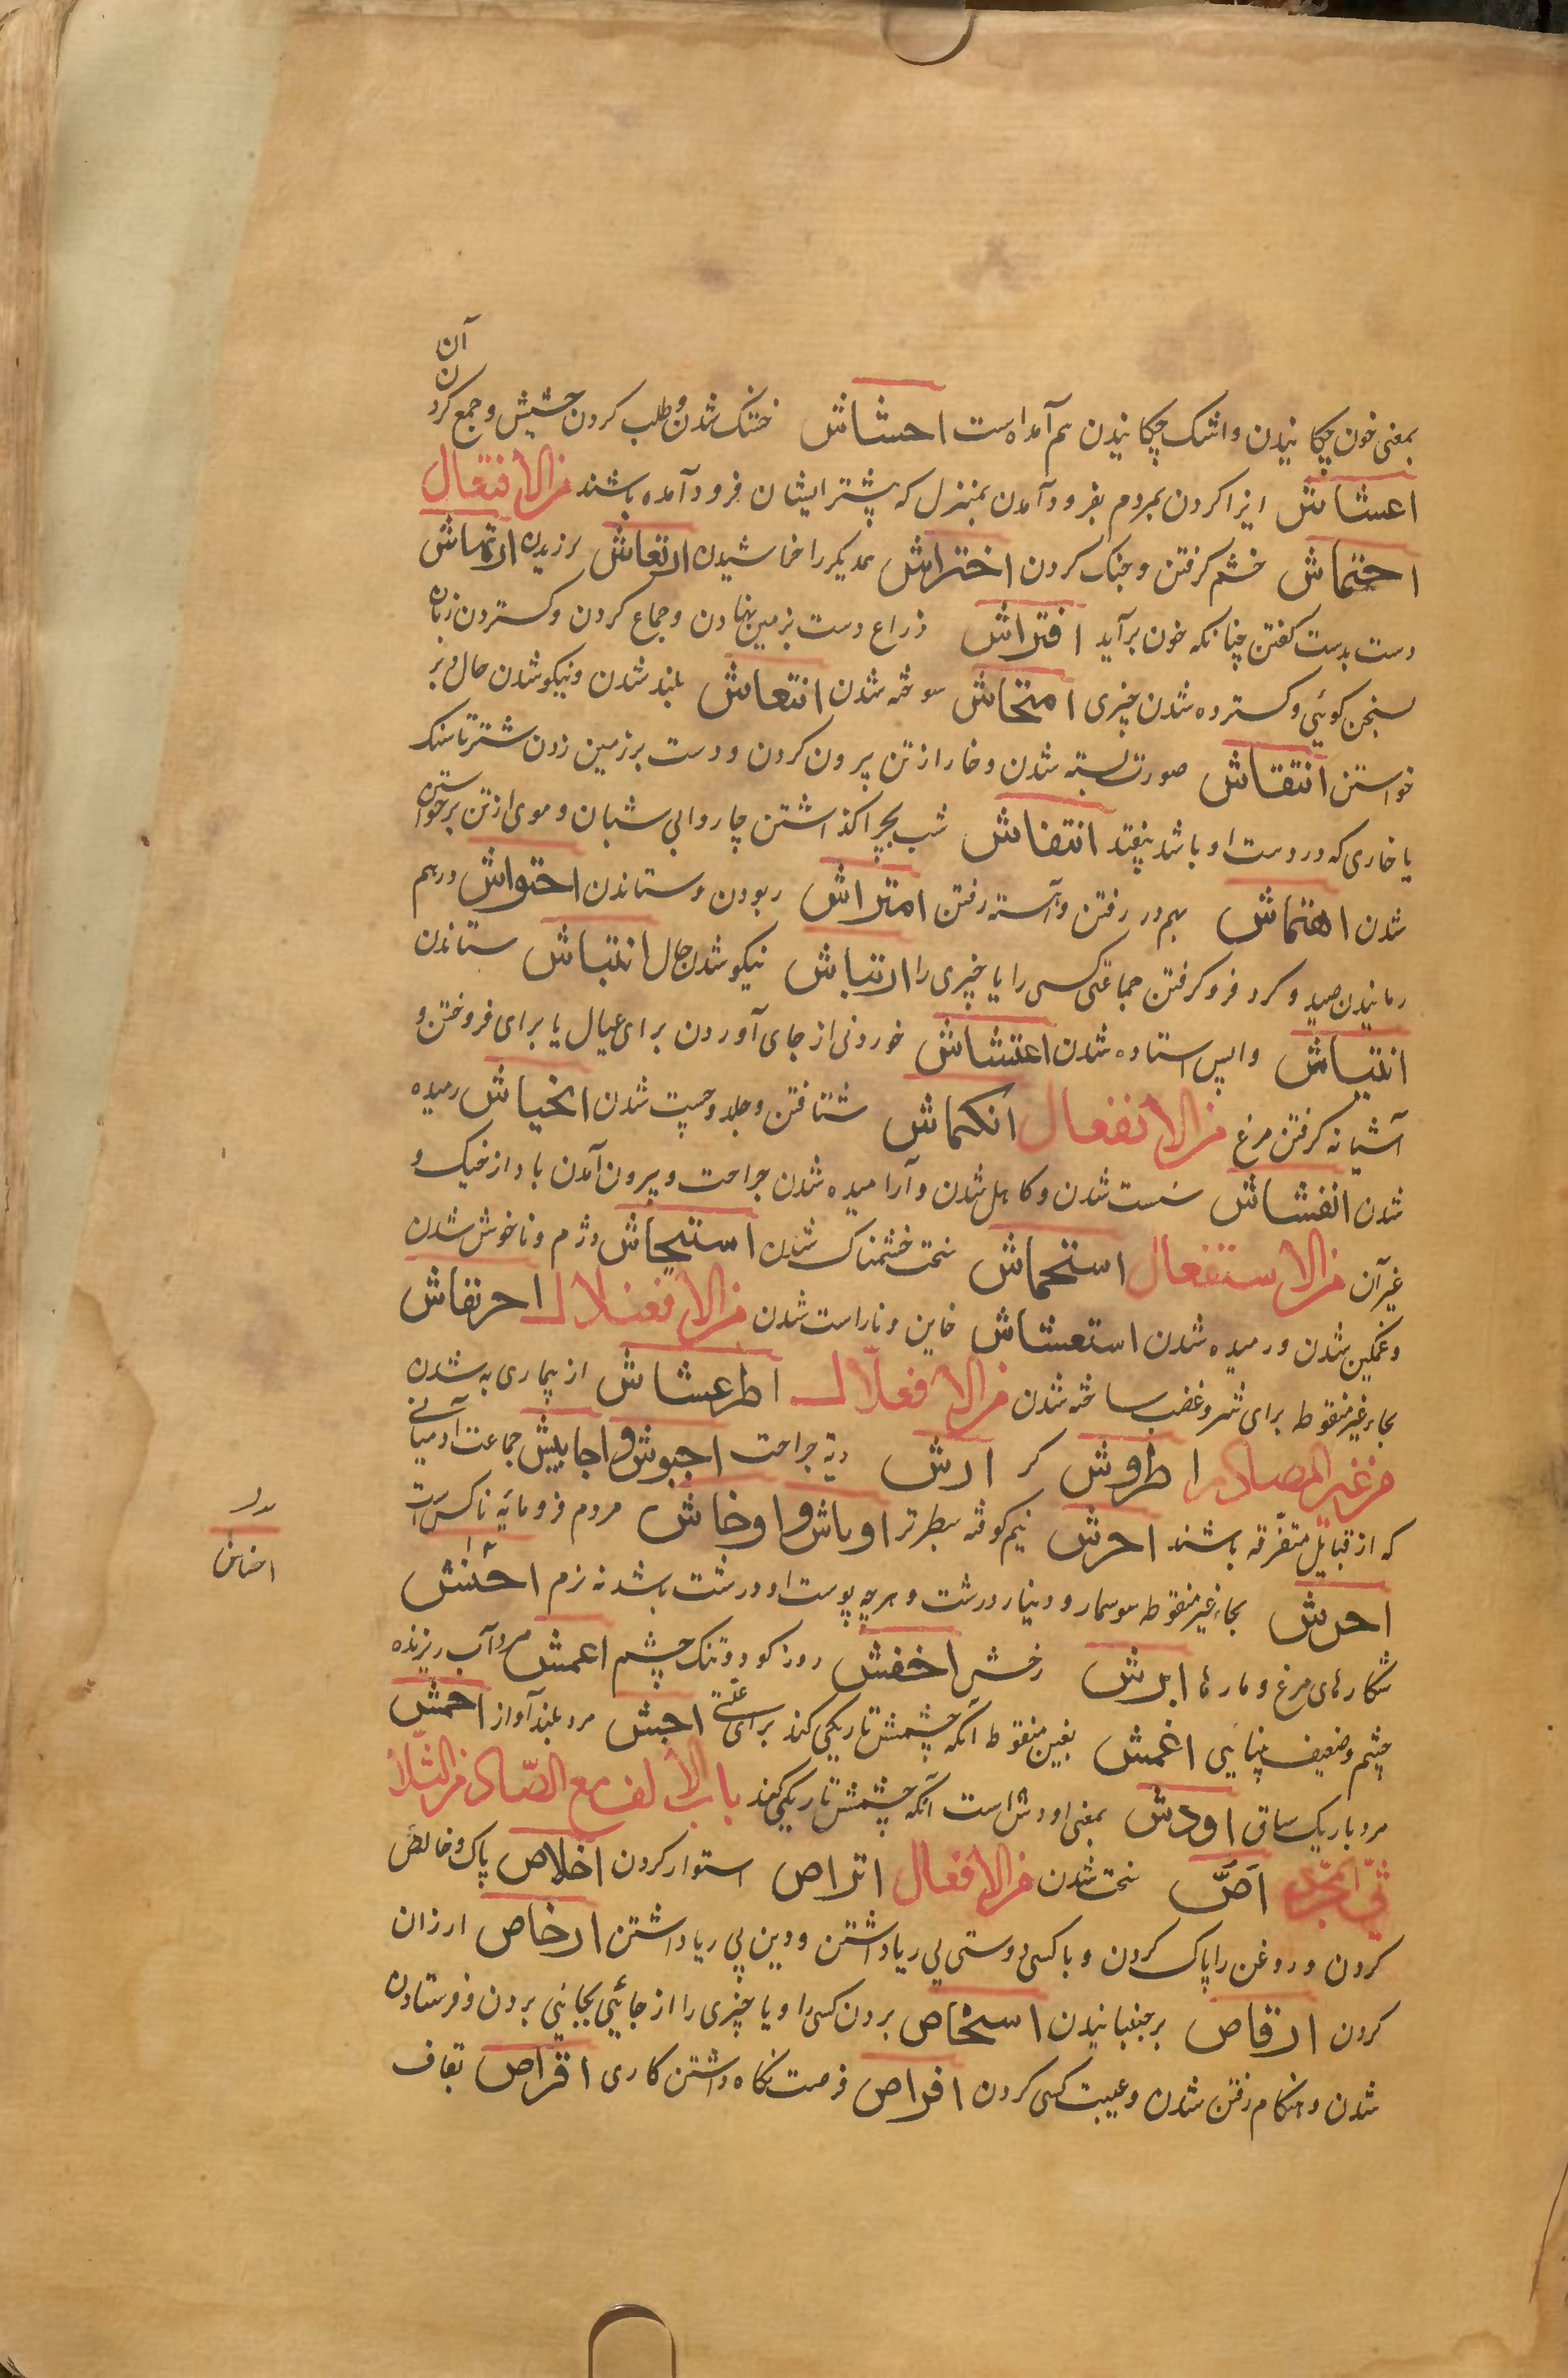 آن
ن
بمعنی خون چکانیدن و اشک چکانیدن هم آمده است احشاش خشک شدن و طلب کردن حشیش و جمع کرد
اعشاش ایزا کردن بمردم بفرود آمدن بمنزل که پشتر ایشان فرود آمده باشند من الافتعال
احتماش خشم گرفتن و جنک کردن اختراش همدیکر را خراشیدن ارتعاش لرزیدن ارتهاش
دست بدست کفتن چنانکه خون برآید افتراش ذراع دست بزمین نهادن و جماع کردن و کستردن زبان
بسخن کوئی و کسترده شدن چیزی امتحاش سوخته شدن انتعاش بلند شدن و نیکو شدن حال و بر
خواستن انتقاش صورت بسته شدن و خار از تن بیرون کردن و دست بر زمین زدن شتر تا سنک
یا خاری که در دست او باشد بیفتد انتفاش شب بچرا کذاشتن چاروا بی شبان و موی از تن برخواستن
شدن اهتماش بهم در رفتن و آهسته رفتن امتراش ربودن و ستاندن احتواش در هم
رمانیدن صید و کرد فرو کرفتن جماعتی کسی را یا چیزی را ارتیاش نیکو شدن حال انتیاش ستاندن
انتیاش واپس استاده شدن اعتشاش خوردنی از جای آوردن برای عیال یا برای فروختن و
آشیانه کرفتن مرغ من الانفعال انکماش شتافتن و جلد و چست شدن انحیاش رمیده
شدن انفشاش سست شدن و کاهل شدن و آرامیده شدن جراحت و بیرون آمدن باد از خیک و
غیر آن من الاستفعال استحماش سخت خشمناک شدن استیحاش دژم و ناخوش شدن
و غمکین شدن و رمیده شدن استغشاش خاین و ناراست شدن من الافعنلال احرنفاش
بحاء غیر منقوطه برای شر و غضب ساخته شدن من الافعلال اطرغشاش از بیماری به شدن
من غیر المصادر اطروش کر ارش دیة جراحت اجبوش و اجابیش جماعت آدمیانی
که از قبایل متفرقه باشند اجرش نیم کوفته سطبرتر اوباش و اوخاش مردم فرومایه ناکس است
احرش بحاء غیر منقوطه سوسمار و دینار درشت و هرچه پوست او درشت باشد نه نرم احنش
شکارهای مرغ و مارها ابرش رخش اخفش روز کور و تنک چشم اعمش مرد آب ریزنده
چشم و ضعیف بینائی اغمش بغین منقوطه آنکه چشمش تاریکی کند برای علتی اجش مرد بلند آواز احمش
مرد باریک ساق اودش بمعنی اودش است آنکه چشمش تاریکی کند باب الالف مع الصاد من الثلا
ثی المجرد اصّ سخت شدن من الافعال اتراص استوار کردن اخلاص پاک و خالص
کردن و روغن را پاک کردن و با کسی دوستی بی ریا داشتن و دین بی ریا داشتن ارخاص ارزان
کردن ارقاص برجنبانیدن اشخاص بردن کسی را و یا چیزی را از جائی بجائی بردن و فرستادن
شدن و هنکام رفتن شدن و غیبت کسی کردن افراص فرصت نکاه داشتن کاری اقراص بقاف